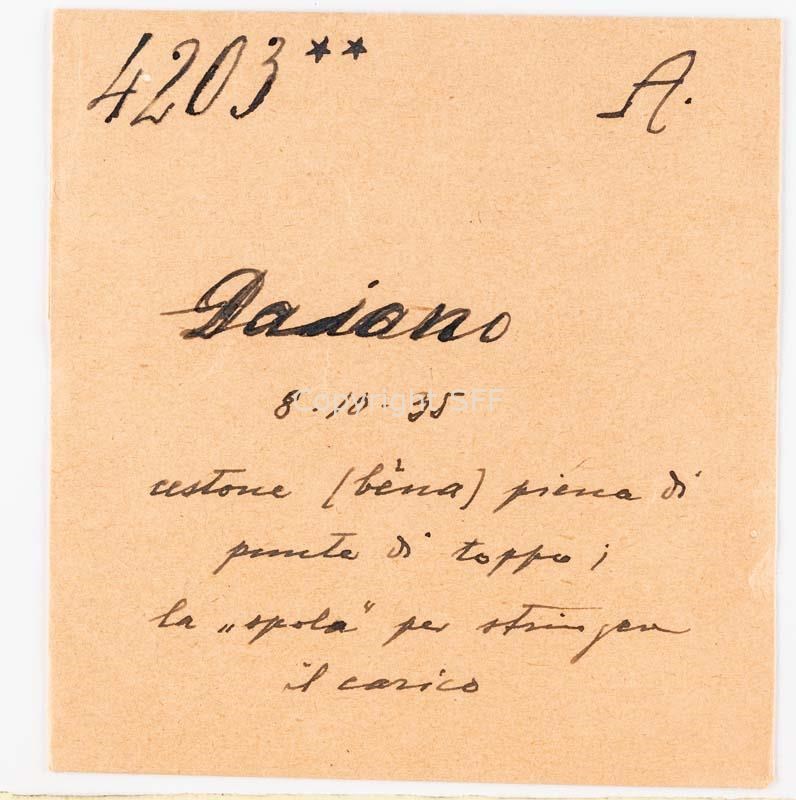 4203** A.
Daiano
8.10.35
cestone (bèna) piena di
punte di toppo;
la „spola" per stringere
il carico
Copyright SFF